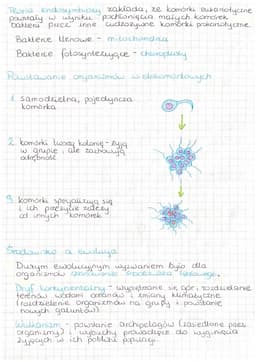 Teoria endosymbiozy zakłada, że komórki eukariotyczne
powstały w wyniku pochłonięcia małych komórek
bakterii przez inne cudzożywne komórki prokariotyczne.
Bakterie tlenowe - mitochondria
Bakterie fotosyntezujące - chloroplasty
Powstawanie organizmów wielokomórkowych
1. samodzielna, pojedyncza
komórka
2. komórki tworzą kolonię - żyją
w grupie, ale zachowują
odrębność
3. komórki specjalizują się
i ich przeżycie zależy
od innych komórek
Środowisko a ewolucja
Dużym ewolucyjnym wyzwaniem było dla
organizmów opanowanie środowiska lądowego.
Dryf kontynentalny - wypiętrzanie się gór, rozdzielanie
terenów wodami oceanów i zmiany klimatyczne
(rozdzielenie organizmów na grupy i powstanie
nowych gatunków)
Wulkanizm - powstanie archipelagów (zasiedlone przez
organizmy) i wybuchy prowadzące do wyginięcia
żyjących w ich pobliżu populacji